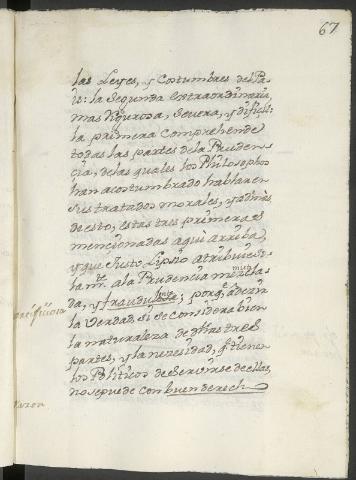 67
las Leyes, y Costumbres del Pa-
is: la Segunda extraordinaria,
mas Vigurosa, Severa, y dificil:
la primera comprehende
todas las partes de la Pruden-
cia, de las quales los Philosophos
han acostumbrado hablar en
sus tratados morales, y ademas
de esto, estas tres primeras
mencionadas aqui arriba,
y que Justo Lipsio atribuie so-
lam.te ala Prudencia mezcla-
da, y fraudulenta; porq. a decir
la Verdad, si se considera bien
la naturaleza de d̃has tres
partes, y la necesidad, q̃ tienen
los Politicos de servirse de ellas,
no se puede con buen derecho
razon